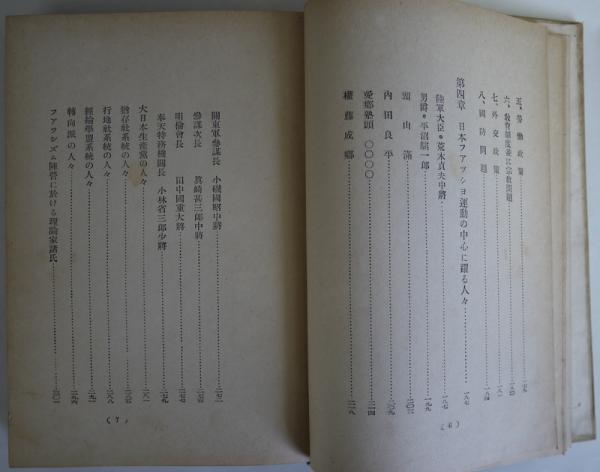 五、勞働政策……一七九
六、教育制度並に宗教問題……一八〇
七、外交政策……一八一
八、國防問題……一八四
第四章 日本フアツシヨ運動の中心に躍る人々……一八七
陸軍大臣・荒木貞夫中將……一八七
男爵・平沼騏一郎……一九九
頭山滿……二〇三
内田良平……二〇九
愛郷塾頭 〇〇〇〇……二一四
權藤成郷……二一八
(6)
關東軍參謀長 小磯國昭中將……二七二
參謀次長 眞崎甚三郎中將……二七五
明倫會長 田中國重大將……二七七
奉天特務機關長 小林省三郎少將……二七九
大日本生產黨の人々……二八一
猶存社系統の人々……二八五
行地社系統の人々……二八八
經綸學盟系統の人々……二九一
轉向派の人々……二九六
フアツシズム陣營に於ける理論家諸氏……三〇一
(7)